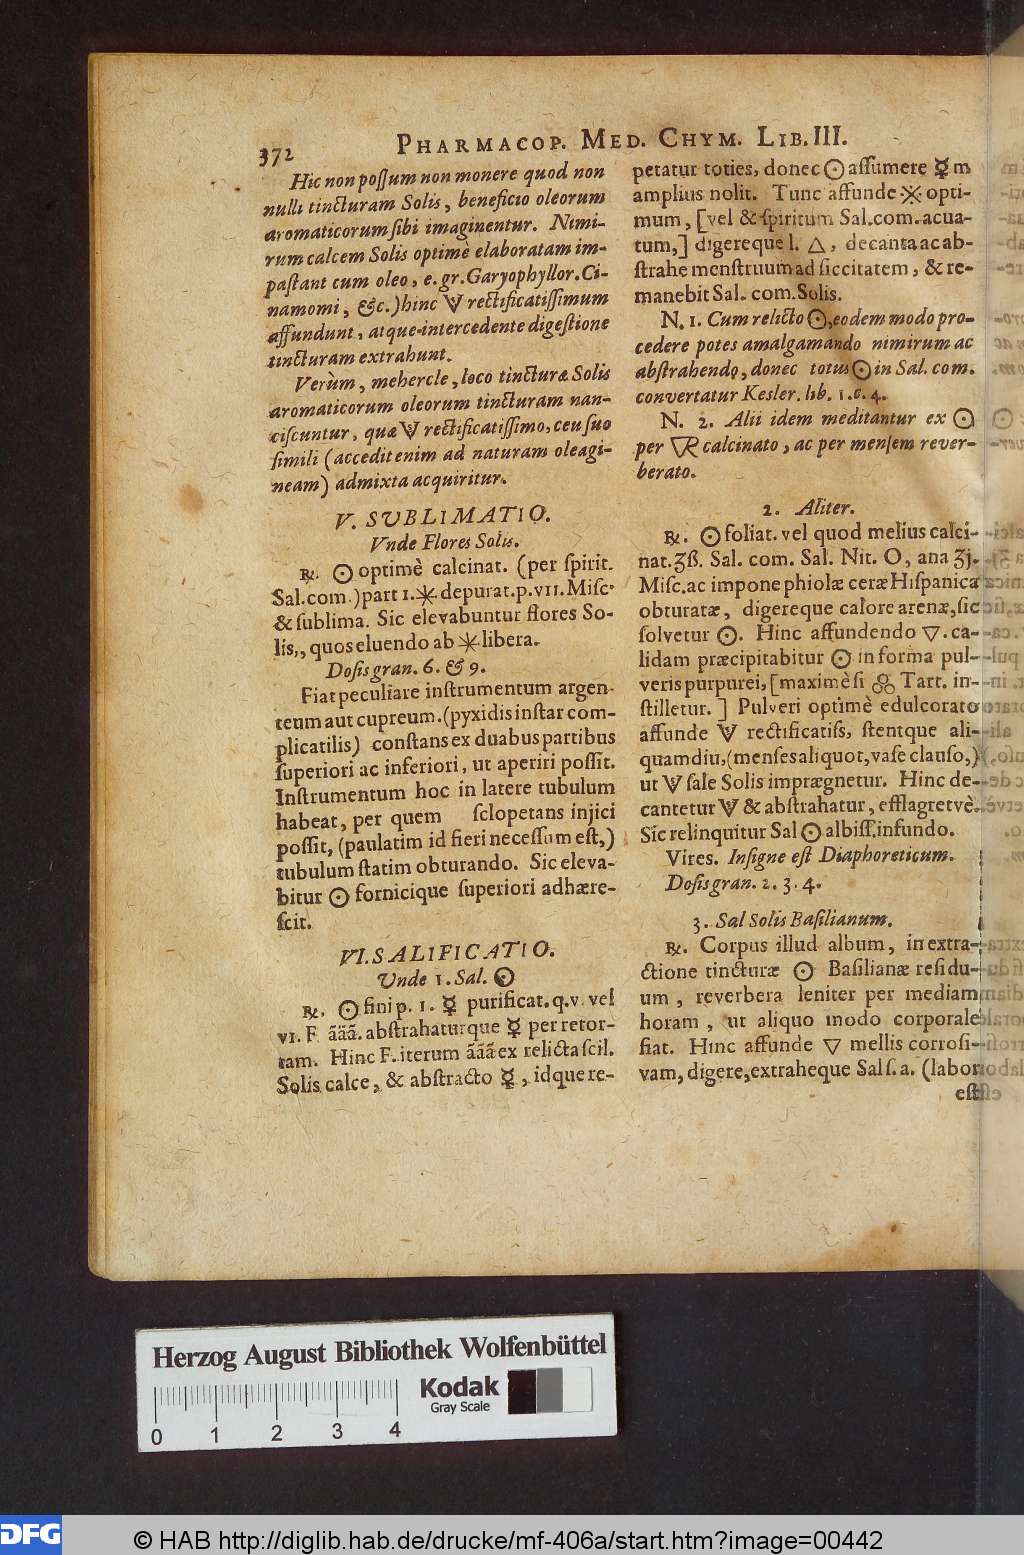 372
PHARMACOP. MED. CHYM. LIB. III.
Hic non possum non monere quod non
nulli tincturam Solis, beneficio oleorum
aromaticorum sibi imaginentur. Nimi-
rum calcem Solis optimè elaboratam im-
pastant cum oleo, e. gr. Garyophyllor. Ci-
namomi, &c.) hinc rectificatissimum
affundunt, atque intercedente digestione
tincturam extrahunt.
Verùm, mehercle, loco tincturæ Solis
aromaticorum oleorum tincturam nan-
ciscuntur, quæ rectificatissimo, ceu suo
simili (accedit enim ad naturam oleagi-
neam) admixta acquiritur.
V. SUBLIMATIO.
Vnde Flores Solis.
℞. ☉ optimè calcinat. (per spirit.
Sal. com.) part 1. ⚹ depurat. p. VII. Misc.
& sublima. Sic elevabuntur flores So-
lis,, quos eluendo ab ⚹ libera.
Dosis gran. 6. & 9.
Fiat peculiare instrumentum argen-
teum aut cupreum. (pyxidis instar com-
plicatilis) constans ex duabus partibus
superiori ac inferiori, ut aperiri possit.
Instrumentum hoc in latere tubulum
habeat, per quem sclopetans injici
possit, (paulatim id fieri necessum est,)
tubulum statim obturando. Sic eleva-
bitur ☉ fornicique superiori adhære-
scit.
VI. SALIFICATIO.
Unde 1. Sal. ☉
℞. ☉ fini p. 1. ☿ purificat. q. v. vel
VI. F. ããã. abstrahaturque ☿ per retor-
tam. Hinc F. iterum ããã ex relicta scil.
Solis calce, & abstracto ☿, idque re-
petatur toties, donec ☉ assumere ☿ m
amplius nolit. Tunc affunde ※ opti-
mum, [vel & spiritum Sal. com. acua-
tum,] digereque l. △, decanta ac ab-
strahe menstruum ad siccitatem, & re-
manebit Sal. com. Solis.
N. 1. Cum relicto ☉, eodem modo pro-
cedere potes amalgamando nimirum ac
abstrahendo, donec totus ☉ in Sal. com.
convertatur Kesler. lib. 1. c. 4.
N. 2. Alii idem meditantur ex ☉
per ▽R calcinato, ac per mensem rever-
berato.
2. Aliter.
℞. ☉ foliat. vel quod melius calci-
nat. ʒß. Sal. com. Sal. Nit. O, ana ʒj.
Misc. ac impone phiolæ ceræ Hispanica
obturatæ, digereque calore arenæ, sic
solvetur ☉. Hinc affundendo ▽. ca-
lidam præcipitabitur ☉ in forma pul-
veris purpurei, [maximè si Tart. in-
stilletur.] Pulveri optimè edulcorato
affunde rectificatiss, stentque ali-
quamdiu, (menses aliquot, vase clauso,)
ut sale Solis imprægnetur. Hinc de-
cantetur & abstrahatur, efflagretvè.
Sic relinquitur Sal ☉ albiss. infundo.
Vires. Insigne est Diaphoreticum.
Dosis gran. 2. 3. 4.
3. Sal Solis Basilianum.
℞. Corpus illud album, in extra-
ctione tincturæ ☉ Basilianæ residu-
um, reverbera leniter per mediam
horam, ut aliquo modo corporale
fiat. Hinc affunde ▽ mellis corrosi-
vam, digere, extraheque Sal s. a. (labor
est
Herzog August Bibliothek Wolfenbüttel
Kodak
Gray Scale
0 1 2 3 4
DFG
© HAB http://diglib.hab.de/drucke/mf-406a/start.htm?image=00442